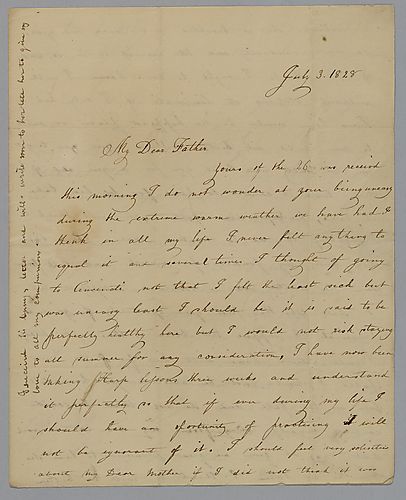 July 3. 1828
My Dear Father
Yours of the 26 was receivd
this morning I do not wonder at your being uneasy
during the extreme warm weather we have had I
think in all my life I never felt anything to
equal it and several times I thought of going
to Cincinati not that I felt the least sick but
was uneasy least I should be it is said to be
perfectly healthy here but I would not risk staying
all summer for any consideration, I have now been
taking Harp lessons three weeks and understand
it perfectly so that if ever during my life I
should have an oportunity of practicing I will
not be ignorant of it. I should feel very solicitous
about my Dear Mother if I did not think it was
I received letter and will write soon to her tell her to give my
love to all my companions.